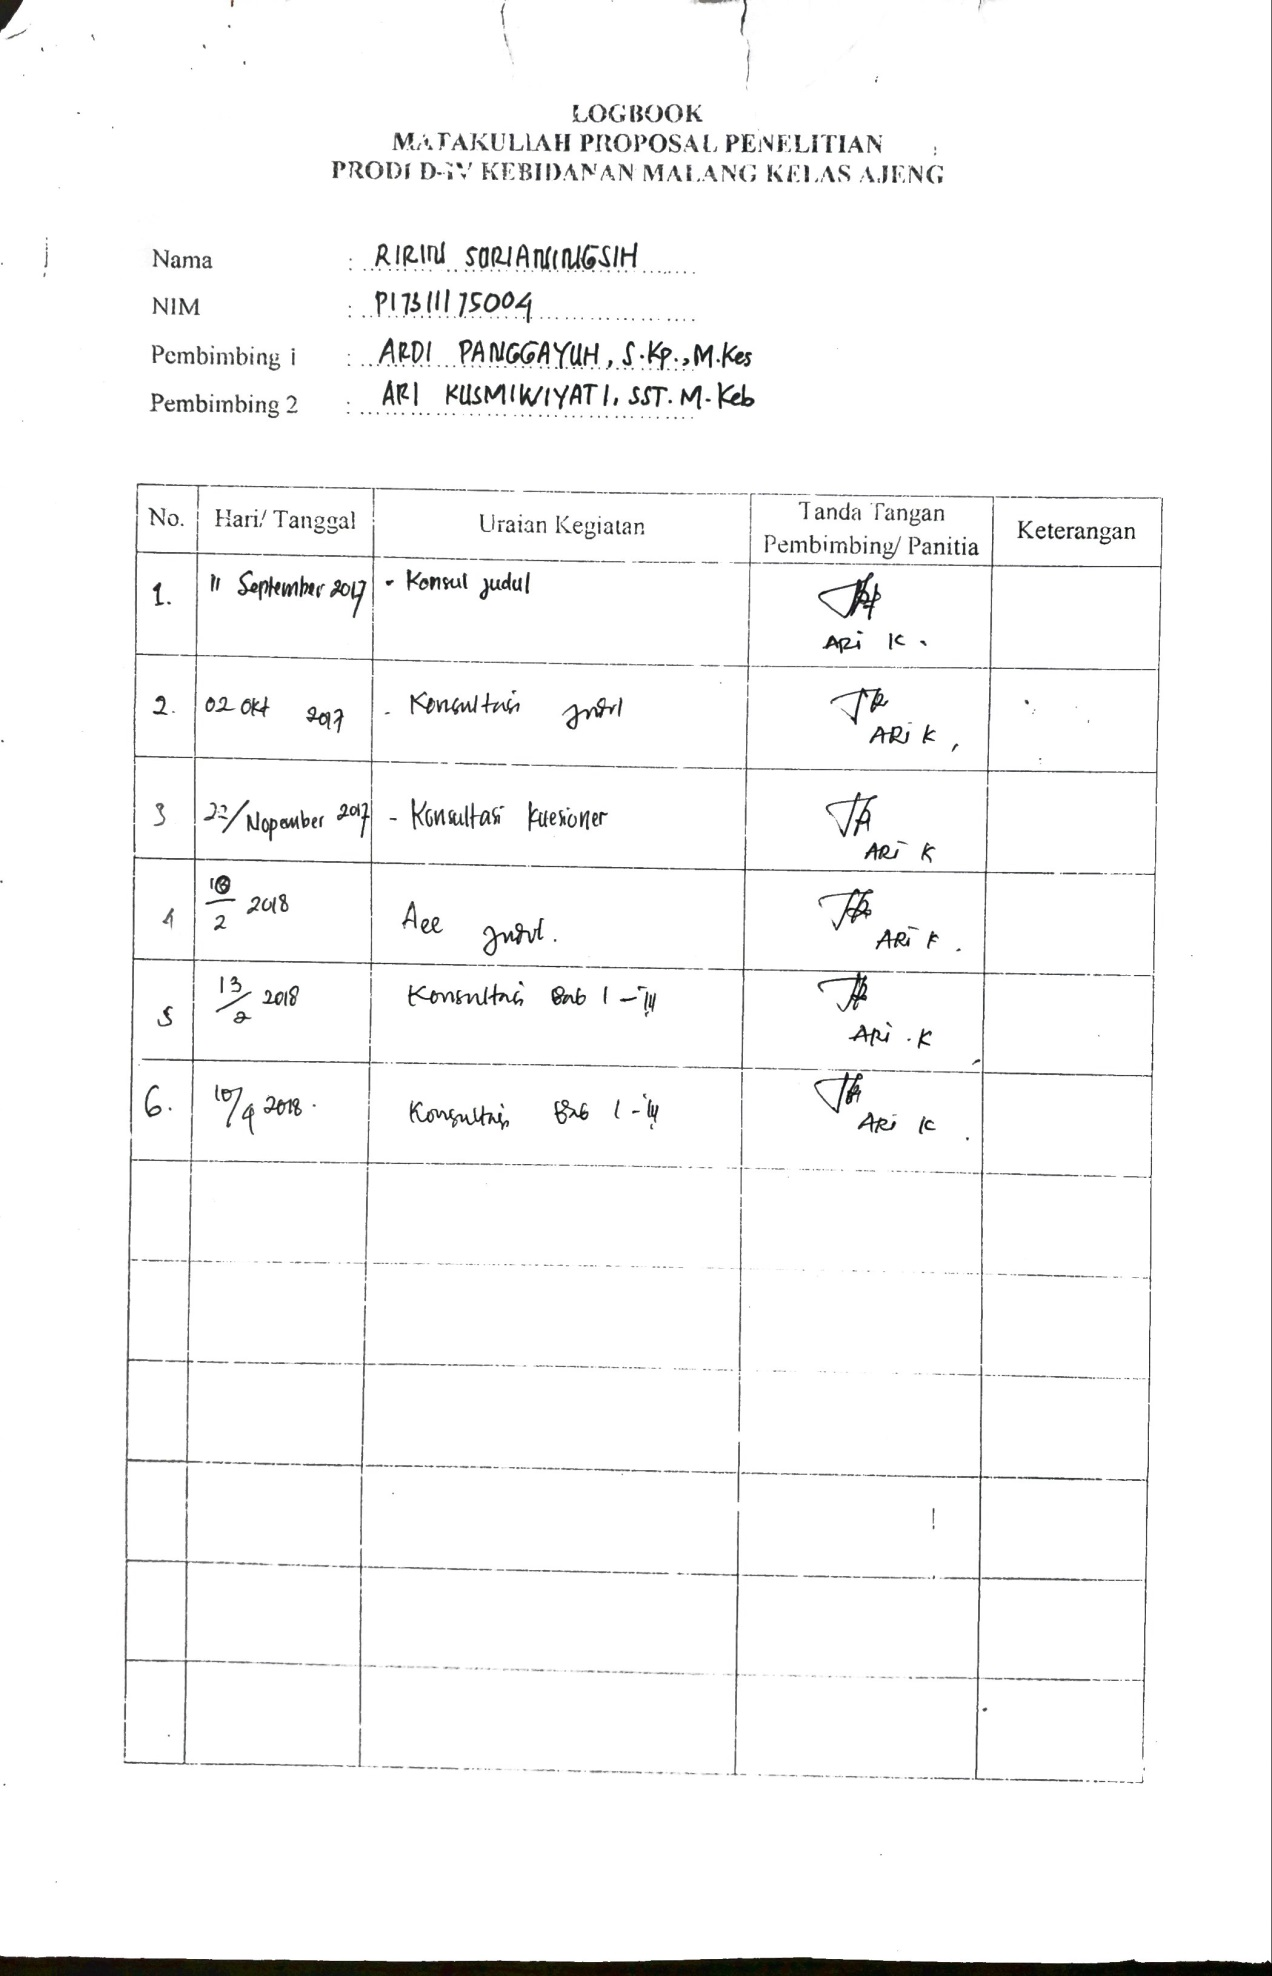 LOGBOOK
MATAKULIAH PROPOSAL PENELITIAN
PRODI D-IV KEBIDANAN MALANG KELAS AJENG
Nama : RIRIN SORIANINGSIH
NIM : P17311175004
Pembimbing 1 : ARDI PANGGAYUH, S.Kp., M.Kes
Pembimbing 2 : ARI KUSMIWIYATI, SST. M.Keb
No. Hari/ Tanggal Uraian Kegiatan Tanda Tangan Pembimbing/ Panitia Keterangan
1. 11 September 2017 - Konsul judul ARi K.
2. 02 Okt 2017 - Konsultasi judul ARi K,
3 22/Nopember 2017 - Konsultasi kuesioner ARi K
4 /2 2018 Acc judul. ARi K.
5 13/2 2018 Konsultasi Bab I - IV ARi.K
6. 10/4 2018. Konsultasi Bab I - IV ARi K.